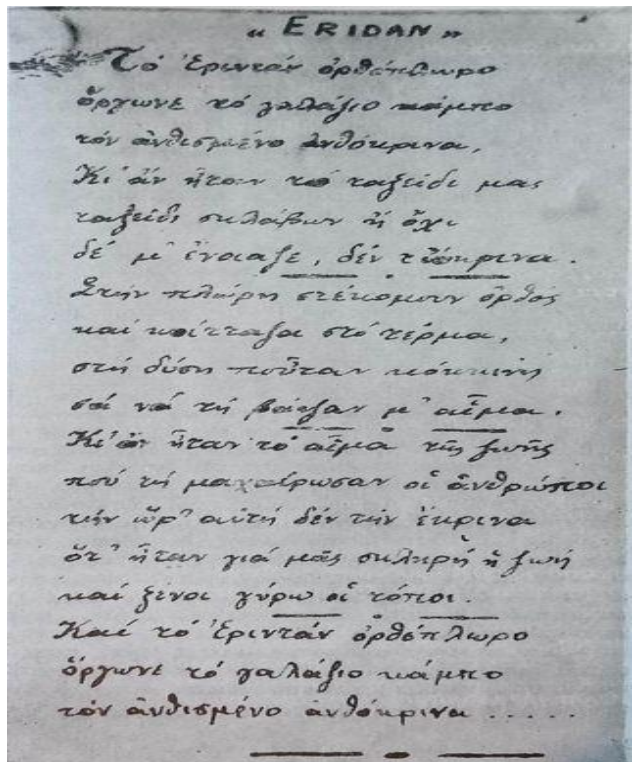 « ERIDAN »
Τό Ἐριντάν ὀρθόπλωρο
ὄργωνε τό γαλάζιο κάμπο
τόν ἀνθισμένο ἀνθόκρινα,
Κι' ἄν ἦταν τό ταξείδι μας
ταξείδι σκλάβων ἤ ὄχι
δέ μ' ἔνοιαξε, δέν τὤκρινα.
Στήν πλώρη στέκομουν ὀρθός
καί κοίτταζα στό τέρμα,
στή δύση ποὖταν κόκκινη
σά νά τή βάψαν μ' αἷμα.
Κι' ἄν ἦταν τό αἷμα τῆς ζωῆς
πού τή μαχαίρωσαν οἱ ἀνθρώποι
τήν ὥρ' αὐτή δέν τήν ἔκρινα
ὅτ' ἦταν γιά μᾶς σκληρή ἡ ζωή
καί ξένοι γύρω οἱ τόποι.
Καί τό Ἐριντάν ὀρθόπλωρο
ὄργωνε τό γαλάζιο κάμπο
τόν ἀνθισμένο ἀνθόκρινα.....